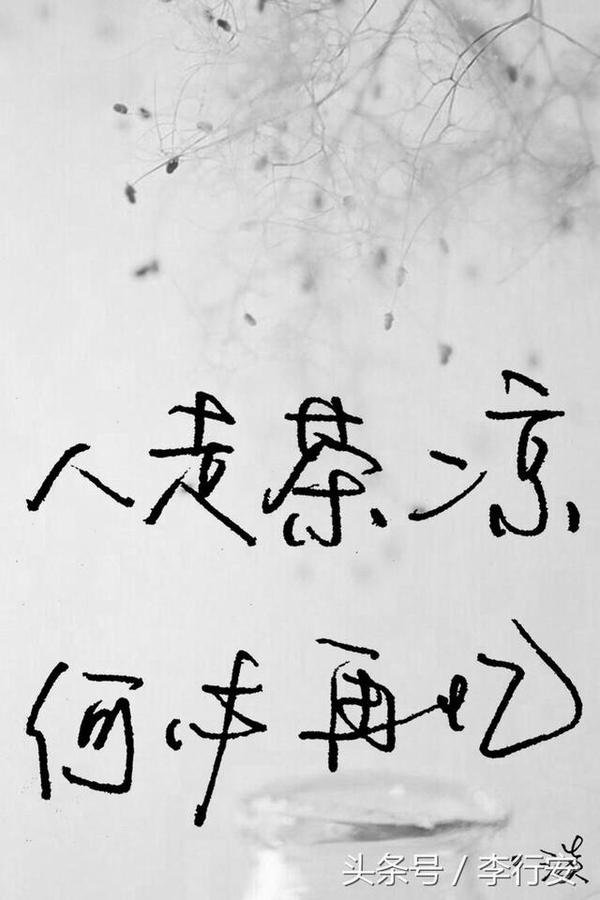 人走茶凉
何必再忆
头条号 / 李行安